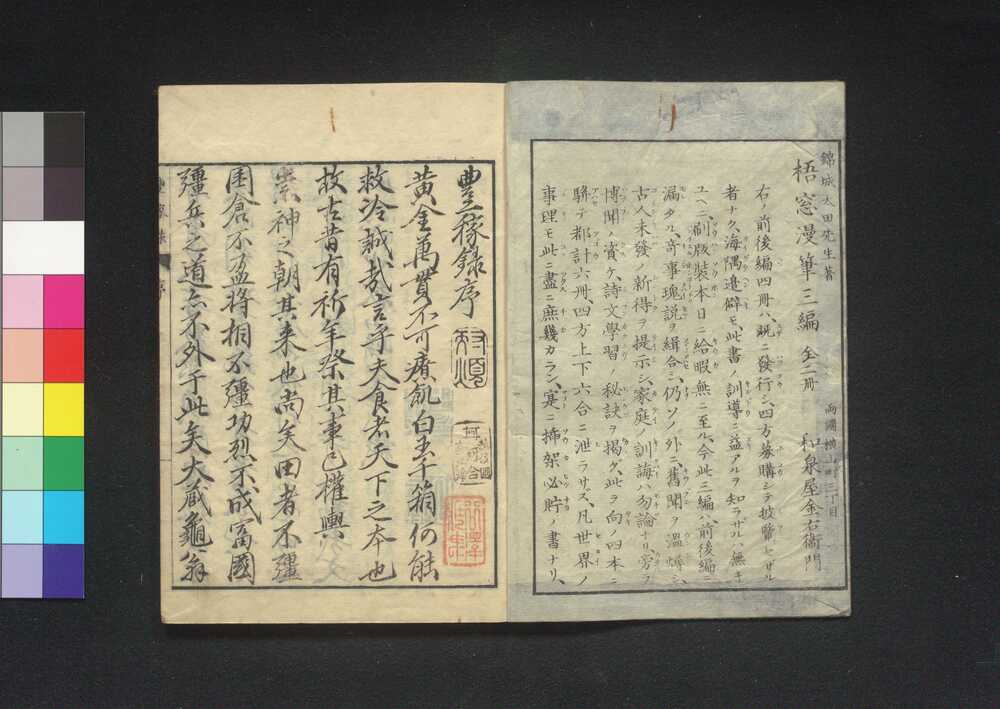 錦城太田先生著
梧窓漫筆三編 全二冊 両國横山町三丁目 和泉屋金右衛門
右ノ前後編四冊ハ、既ニ發行シ、四方募購シテ披覽セザル
者ナク、海隅邉僻モ、此書ノ訓導ニ益アルヲ知ラザルハ無キ
ユヘニ、刷版裝本日ニ給暇無ニ至ル、今此三編ハ、前後編ニ
漏タル、竒事瑰説ヲ緝合シ、仍ソノ外ニ舊聞ヲ温燖シ、
古人未發ノ新得ヲ提示シ、家庭ノ訓誨ハ勿論ナリ、旁ラ
博聞ノ資ケ、詩文學習ノ秘訣ヲ揭ク、此ヲ向ノ四本ニ
聨テ都計六冊、四方上下六合ニ泄ラサス、凡世界ノ
事理モ此ニ盡ニ庶幾カラン、寔ニ挿架必貯ノ書ナリ、
豊稼録序
黄金萬貫不可療飢白玉千箱何能
救冷越哉言乎夫食者天下之本也
故古昔有祈年祭其事已權輿
崇神之朝其来也尚矣田者不疆
囷倉不盈將相不彊功烈不成富國
彊兵之道亦不外于此矣大蔵龜翁